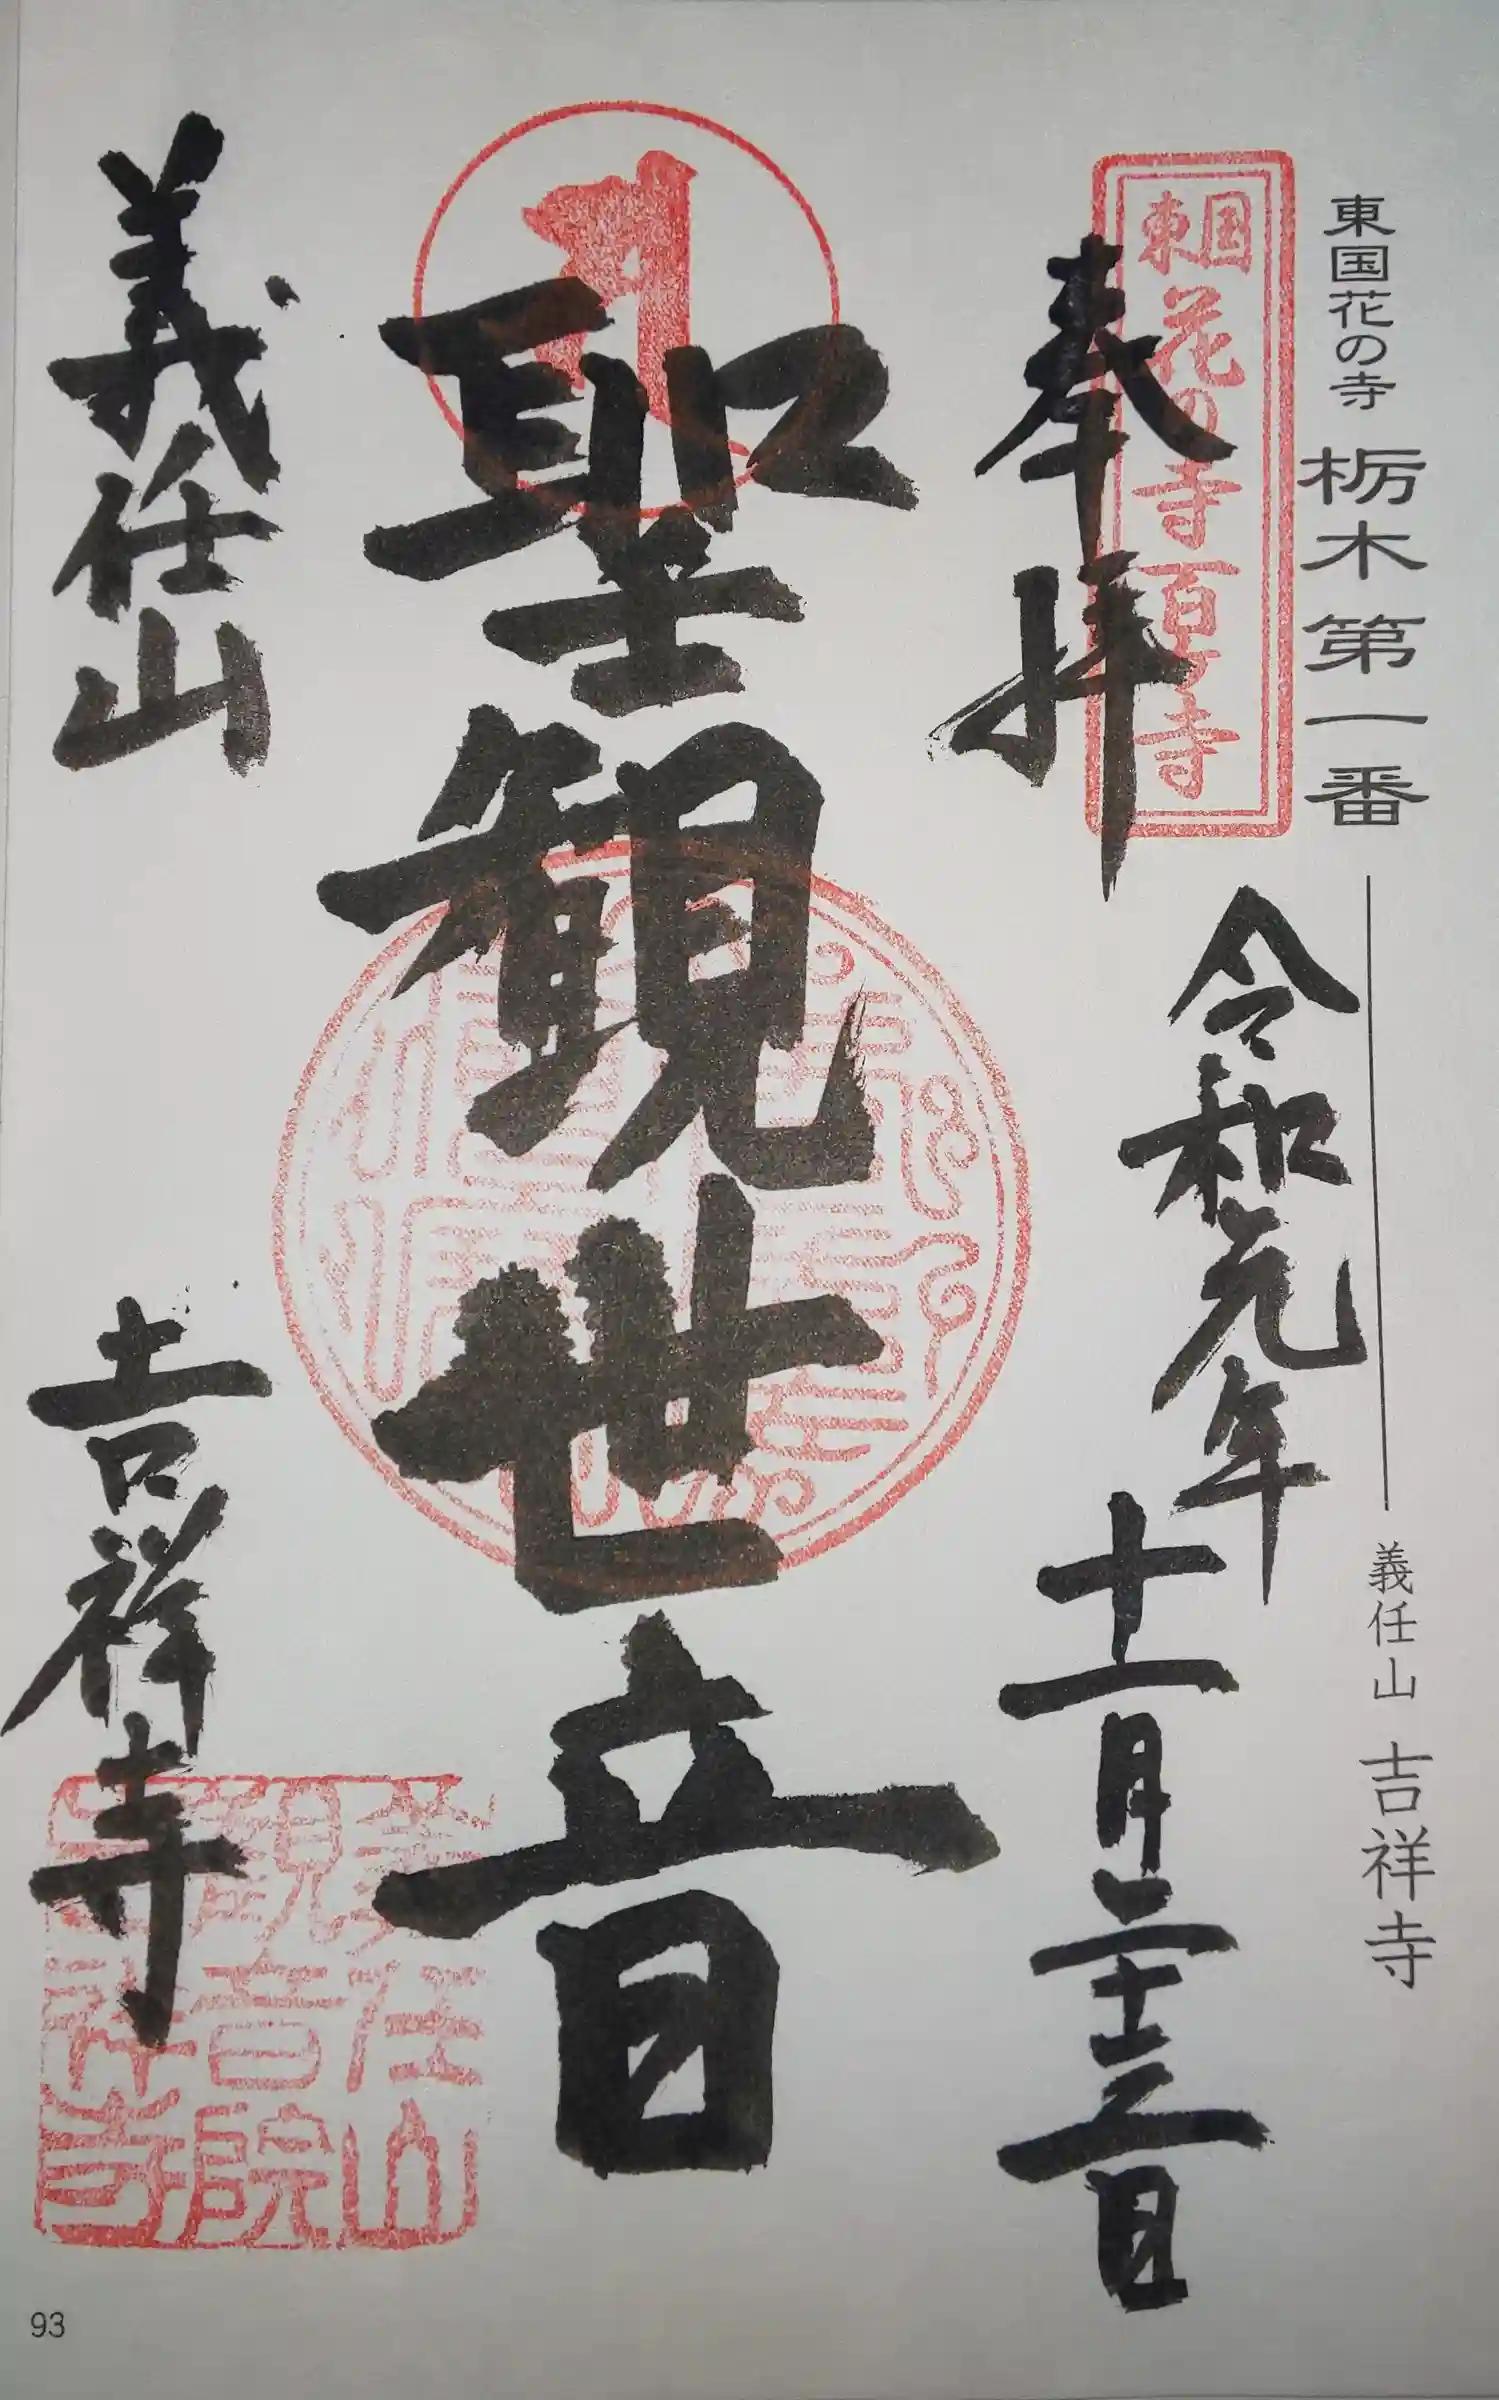 東国花の寺 栃木第一番 義任山 吉祥寺
東国花の寺百ヶ寺
奉拝
令和元年十一月二十三日
聖観世音
義任山 吉祥寺
義任山
観音院
吉祥寺
93